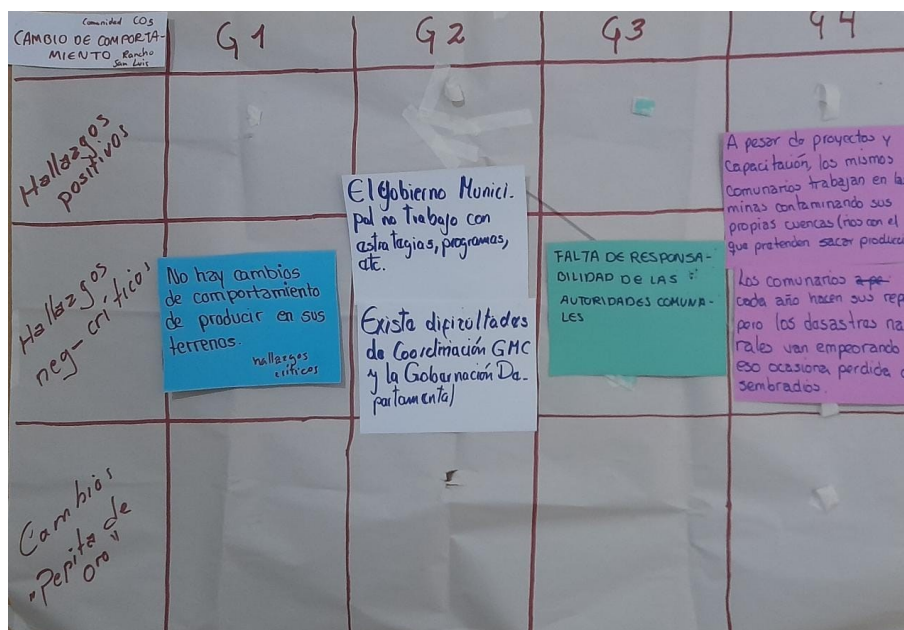 Comunidad COS
CAMBIO DE COMPORTA-
MIENTO Rancho
San Luis
G1
G2
G3
G4
Hallazgos
positivos
Hallazgos
neg-críticos
Cambios
"Pepita de
oro"
No hay cambios
de comportamiento
de producir en sus
terrenos.
hallazgos
críticos
El gobierno Munici-
pal no trabajo con
estrategias, programas,
etc.
Existe dificultades
de Coordinación GMC
y la Gobernación De-
partamental
FALTA DE RESPONSA-
BILIDAD DE LAS
AUTORIDADES COMUNA-
LES
A pesar de proyectos y
Capacitación, los mismos
comunarios trabajan en la
minas contaminando sus
propias cuencas (rios con el
que pretenden sacar producc
Los comunarios
cada año hacen sus rep
pero los desastres na
rales van empeorando
eso ocasiona perdida
sembradios.